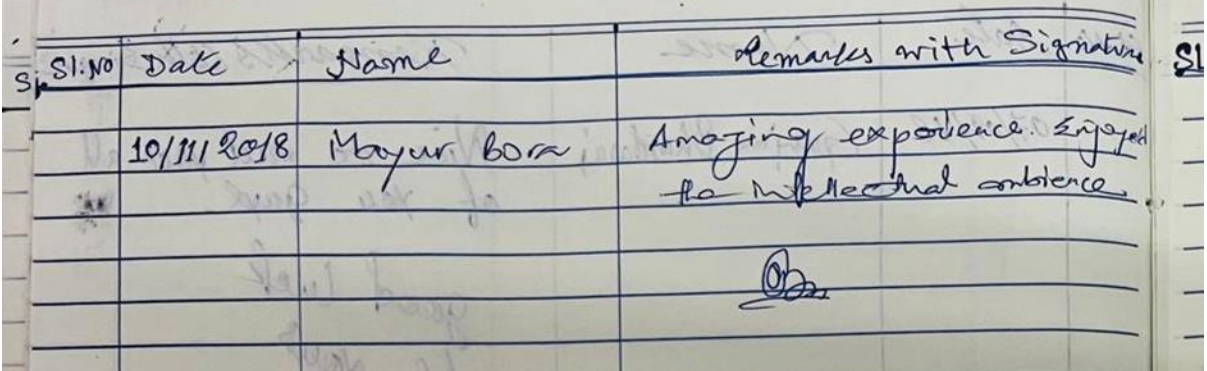 Sl:No Date Name Remarks with Signature
10/11/2018 Mayur Bora Amazing experience. Enjoyed
the intellectual ambience.
Sl